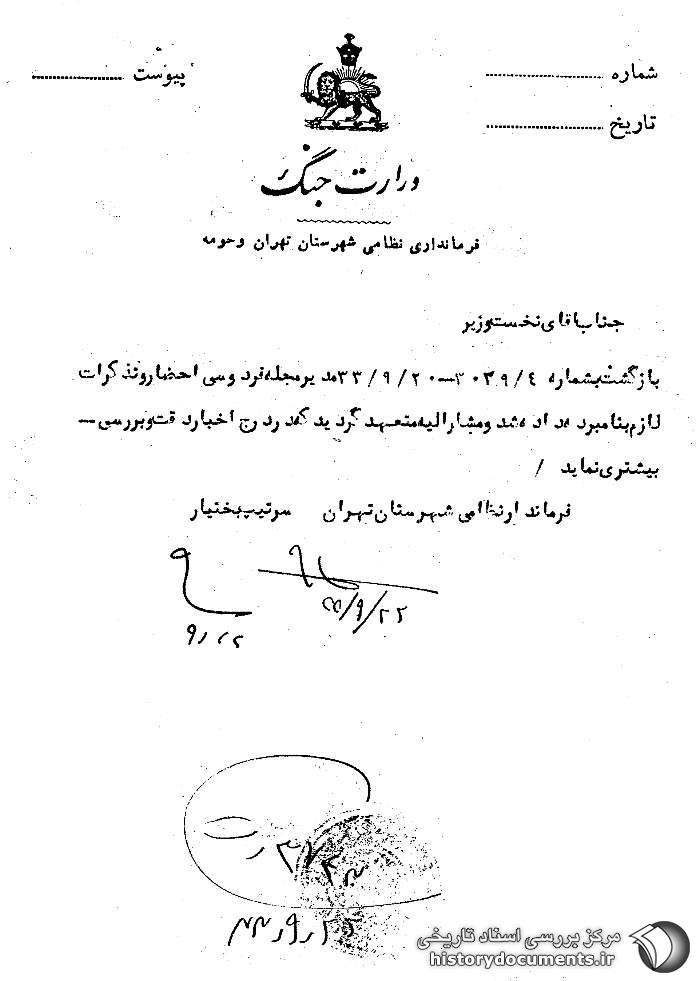 شماره ........................
تاریخ ........................
پیوست ........................
وزارت جنگ
فرمانداری نظامی شهرستان تهران وحومه
جناب اقای نخست وزیر
بازگشت بشماره ۳۰۳۹/۴ـ۳۳/۹/۲۰ مدیر مجله فردوسی احضار وتذکرات
لازم بنامبرده داده شد و مشارالیه متعهد گردید که در درج اخبار دقت و بررسی ـ
بیشتری نماید /
فرماندار نظامی شهرستان تهران سرتیپ بختیار
۳۳/۹/۲۲
۳۳ر۹ر۲۲
مرکز بررسی اسناد تاریخی
historydocuments.ir